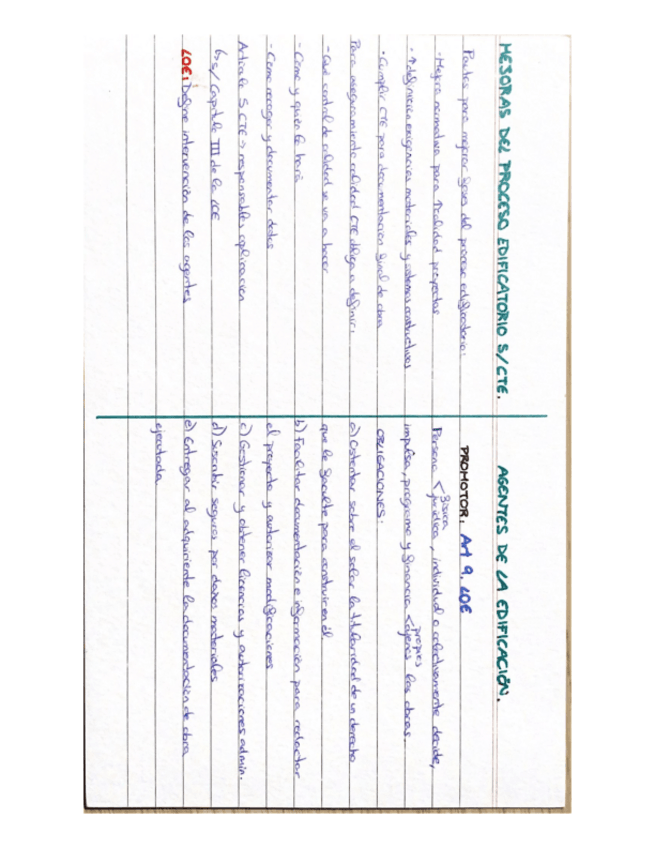 MESORAS DEL PROCESO EDIFICATORIO S/CTE.
Pautas para mejorar fases del proceso edificatorio:
- Mejora normativa para ↑calidad proyectos
- ↑ definición exigencias materiales y sistemas constructivos
- Cumplir CTE para documentación final de obra
Para aseguramiento calidad CTE obliga a definir:
- Qué control de calidad se va a hacer
- Cómo y quién lo hará
- Cómo recoger y documentar datos
Artículo 5 CTE → responsables aplicación
S/ Capítulo III de la LOE
LOE: Define intervención de los agentes
AGENTES DE LA EDIFICACIÓN.
PROMOTOR. Art 9. LOE
Persona < física jurídica, individual o colectivamente decide,
impulsa, programa y financia < propios ajenos las obras.
OBLIGACIONES:
a) Ostentar sobre el solar la titularidad de un derecho
que le faculte para construir en él
b) Facilitar documentación e información para redactar
el proyecto y autorizar modificaciones
c) Gestionar y obtener licencias y autorizaciones admin.
d) Suscribir seguros por daños materiales
e) Entregar al adquiriente la documentación de obra
ejecutada